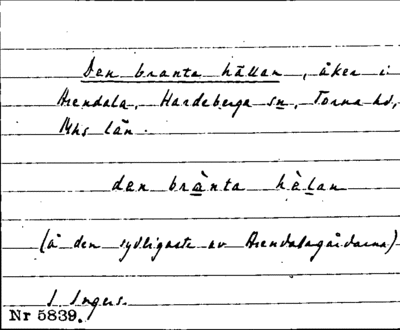 Den branta hällan, åker i
Arendala, Hardeberga sn, Torna hd,
Mhs län.
den brànta hèlan
(å den sydligaste av Arendalagårdarna)
I Ingers.
Nr 5839.